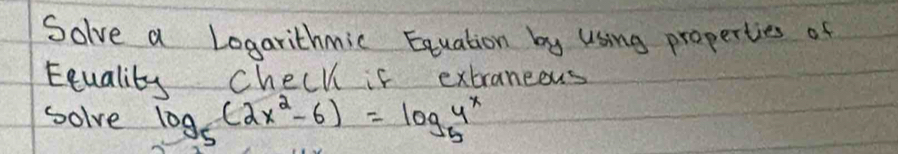 Solve a Logarithmic Equation by using properties of
Equality Check if extraneous
Solve log₅ (2x² - 6) = log₅ 4ˣ